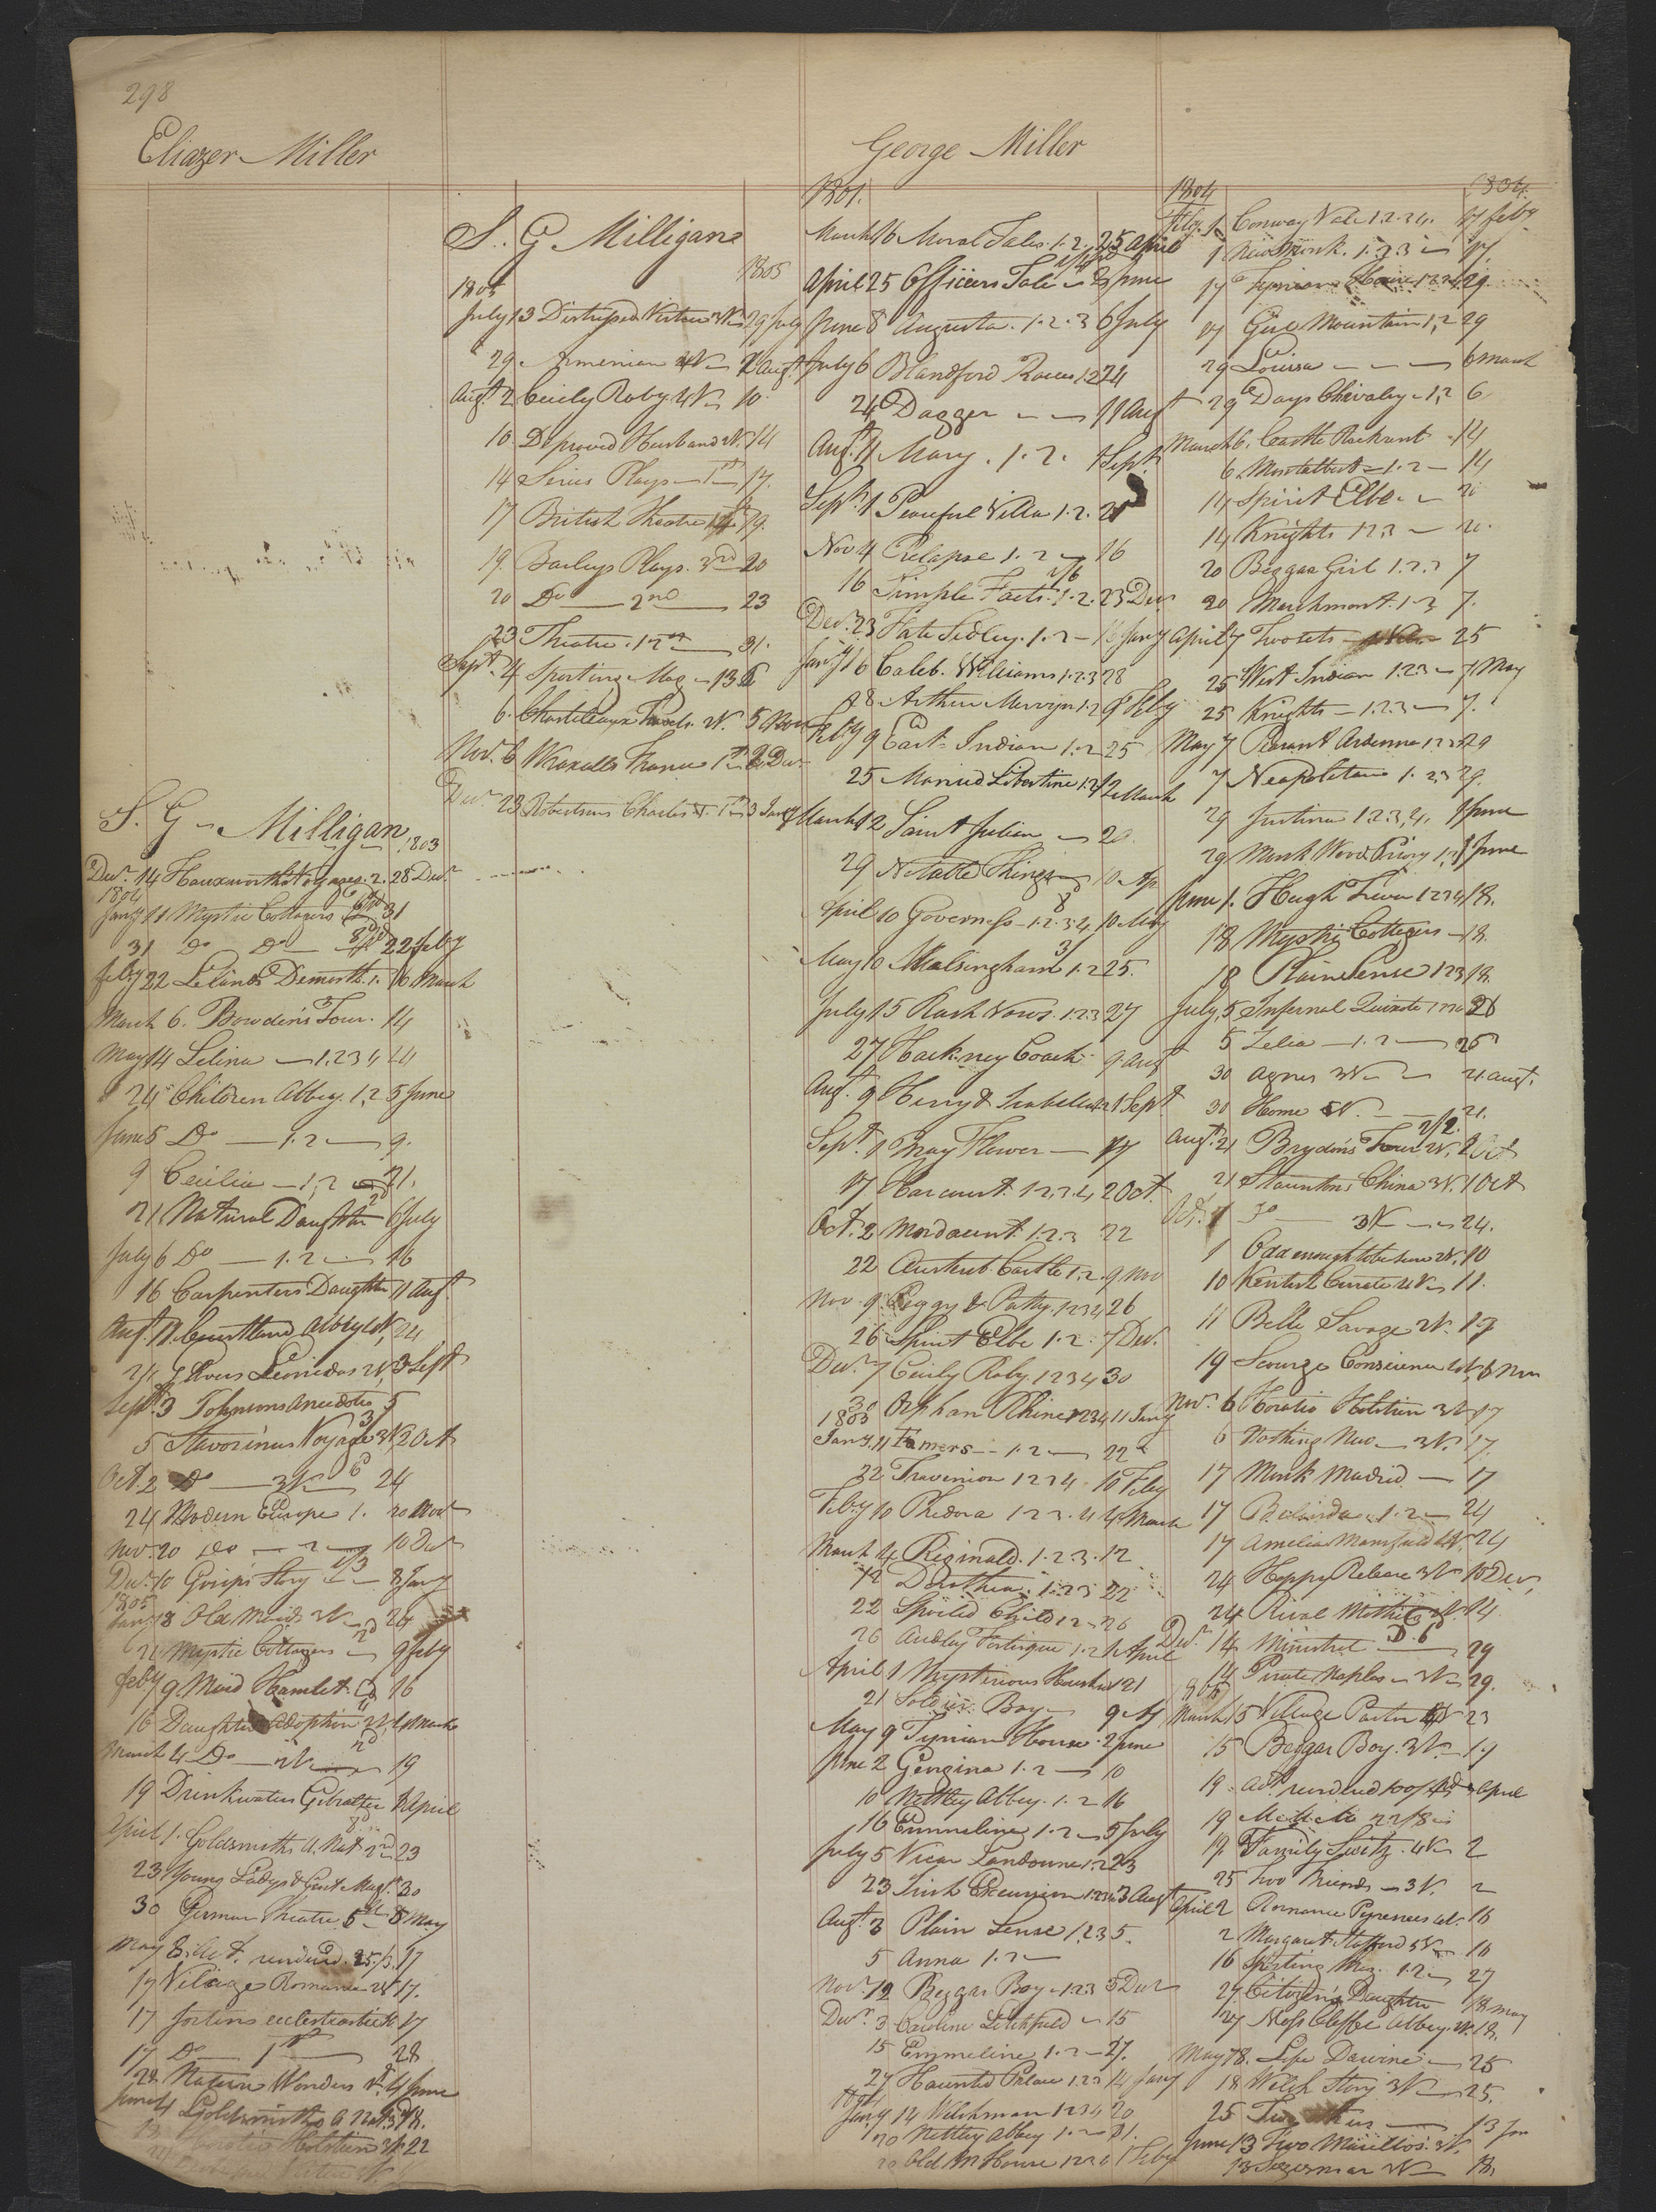 298
Eliazer Miller
S. G. Milligan
1803
Decr. 14 Hauxworths Voyages. 2. 28 Decr.
1804
Jany 11 Mystic Cottagers 31
31 Do Do 22 feby
feby 22 Lelands Demosth. 1. 6 March
March 6. Bowdens Tour. 14
May 14 Lelina 1.2 3 4 24
24 Children Abbey. 1,2 5 June
June 5 Do 1.2 9.
9 Cecilia 1,2 21.
21 Natural Daughter 6 July
July 6 Do 1.2 16
16 Carpenters Daughter 11 Augt.
Augt. 11 24
24 Glovers Leonidas 2V. 3 Sept
Sept. 3 Johnsons Anecdotes 5
5 Stavorinus Voyage 3V. 2 Oct
Oct. 2 Do 3V 24
24 Modern Europe 1. 20 Nov
Nov. 20 Do 2 10 Decr
Decr. 10 Gossips Story 8 Jany
1805
Jany 8 Old Maids 3V 24
Mystic Cottagers 9 feby
feby 9 Maid Hamlet 16
16 Daughter Adoption 2V. 4 March
March 4 Do 2V 19
19 Drinkwaters Gibralter 1 April
April 1. Goldsmiths A. Nat 2nd 23
23 Young Ladys & Gent Magt. 30
30 German Theatre 5 8 May
May 8. Act. rendered. 25/3. 17
17 Village Romance 2V 17.
17 Jortins ecclesiastical 17
17 Do 1st 28
28 Nature Wonders 4 June
June 4 Goldsmiths A Nat. 3rd 18.
18 Horatio Holstein 3V. 22
S. G Milligan
1805 1805
July 13 Distressed Virtue 3V 29 July
29 Armenian 4V 2 Augt
Augt. 2 Cecily Roby 4V 10
10 Depraved Husband 2V. 14
14 Series Plays 1st 17.
17 British Theatre 14th 19.
19. Baileys Plays. 3rd 20
20 Do 2nd 23
23 Theatre. 12th 31.
Sept. 4 Sporting Mag 13 6
6. Chastileaux Travels. 2V. 5 Nov
Nov. 6 Wraxalls France 1st 2 Decr
Decr. 23 Robertsons Charles V. 1st 3 Jany
George Miller
1801.
March 16 Moral Tales. 1.2. 25 April
April 25 Officers Tale 8 June
June 8 Augusta. 1.2.3 6 July
July 6 Blandford Races 1.2 24
24 Dagger 11 Augt
Augt. 11 Mary. 1.2. 1 Sept.
Sept. 1 Peaceful Villa 1.2. 21
Nov 4 Relapse 1.2 16
16 Simple Facts. 1.2. 23 Decr
Decr. 23 Fate Sedley. 1.2 16 Jany
Jany 16 Caleb. Williams 1.2.3 28
28 Arthur Mervyn 1.2 9 Feby
Feby 9 East Indian 1.2 25
25 Married Libertine 1.2 12 March
March 12 Saint Julien 20.
29 Notable Things 10 Ap.
April 10 Governess 1.2.3.4. 10 May
May 10 Walsingham 1.2 25.
July 15 Rash Vows. 1.2.3 27
27 Hackney Coach 9 Augt
Augt. 9 Henry & Isabella 1 Sept
Sept. 1 May Flower 17
17 Harcourt. 1.2.3.4 2 Oct.
Oct. 2 Mordaunt. 1.2.3 22
22 Castle 1.2. 9 Nov
Nov. 9 Peggy & Patty. 1234 26
26 Spirit Elbe 1.2. 7 Decr.
Decr. 7 Cecily Roby. 1234 30
30 Orphan Rhine 1234 11 Jany
1803
Jany. 11 Tamers 1.2 22
22 Travenion 1 2 3 4 10 Feby
Feby 10 Phedora 1 2 3. 4 4 March
March 4 Riginald. 1.2.3. 12
12 Dorothea. 1.2.3 22
22 Spoiled Child 1 2 26
26 Audley Fortescue 1.2 1 April
April 1 Mysterious Husband 21
21 Soldier Boy 9 My
May 9 Tynian House 2 June
June 2 Georgina 1.2 10
10 Nettley Abbey. 1.2 16
16 Emmeline 1.2 5 July
July 5 Vicar Landoune 1.2 23
23 Irish Excursion 1234 3 Augt
Augt. 3 Plain Sense 1,2 3 5.
5 Anna 1.2
Nov. 12 Beggar Boy 1.2.3 3 Decr
Decr. 3 Caroline Litchfield 15
15 Emmeline 1.2 27.
27 Haunted Palace 1.2 3 14 Jany
1804
Jany 14 Welchman 1234 20
20 Nettley Abbey 1.2 31.
Old M House 1 Feby
1804 1804.
Feby. 1 Conway Vale 1.2.3 4. 17 feby
1 New Monk. 1.2.3 17.
17 Tynian House 29
17 Girl Mountain 1,2 29
29 Louisa 6 March
29 Days Chivalry 1,2 6
March 6. Castle Rackrent 14
6 Montalbert 1.2 14
14 Spirit Elbe 20
14 Knights 1 2 3 20.
20 Beggar Girl 1.2.3 7
20 Marchmont. 1.3 7.
April 7 Two sets 25
25 West Indian 1.2.3 7 May
25 Knights 1.2.3 7.
May 7 Peasant Ardenne 1 2 3 29
7 Neapolitain 1. 2 3 29.
29 Justina 1 2.3,4, 1 June
29 Monk Wood Priory 1,2 1 June
June 1. Hugh Trevor 1 2 3 4 18.
18 Mystic Cottagers 18.
18 Plain Sense 1 2 3 18.
July, 5 Infernal Quixote 26
5 Zelia 1.2 25
30 Agnes 3V 21 Augt.
30 Home 5V. 21.
Augt. 21 Brydons Tour 2V. 1 Oct
21 Stauntons China 3V. 1 Oct
Oct. 1 Do 3V 24.
1 Odd enough to be sure 2V. 10
10 Kentish Curate 4V 11.
11 Belle Savage 2V. 19
19 Scourge Conscience 6 Nov
Nov. 6 Horatio Holstein 3V 17
6 Nothing New 3V. 17.
17 Monk Madrid 17
17 Belinda 1.2 24
17 Amelia Mansfield 4V. 24
24 Happy Release 3V 10 Decr,
24 Rival Mothers 2V. 14
Decr. 14 Minstrel 29
14 Pirate Naples 3V 29.
1805
March 15 Village Pastor 23
15 Beggar Boy. 3V. 19
19 Act. rendered 100/ April
19 22/8
19 Family Switz. 4V 2
25 Two Friends 3V. 2
April 2 Romance Pyrenees 4V. 16
2 Margaret Stafford 5V 16
16 Sporting Mag. 1.2 27
27 Citizens Daughter 18 May
27 Ness Cliffe Abbey. 2V. 18.
May 18. Life Darwine 25
18 Welch Story 3V 25.
25 13 Jun
June 13 Two Marillios. 3V.
13 3V 18.